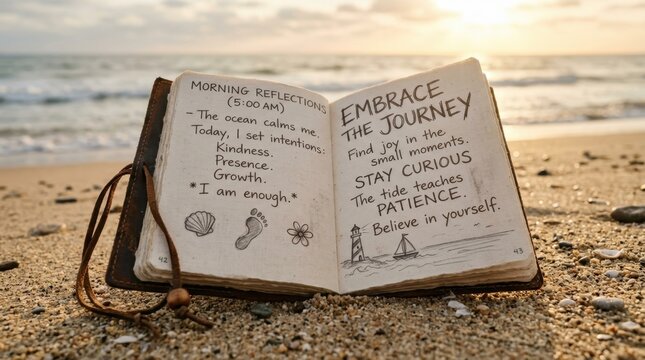 MORNING REFLECTIONS
(5:00 AM)
- The ocean calms me.
Today, I set intentions:
Kindness.
Presence.
Growth.
*I am enough.*
42
EMBRACE
THE JOURNEY
Find joy in the
small moments.
STAY CURIOUS
The tide teaches
PATIENCE.
Believe in yourself.
43